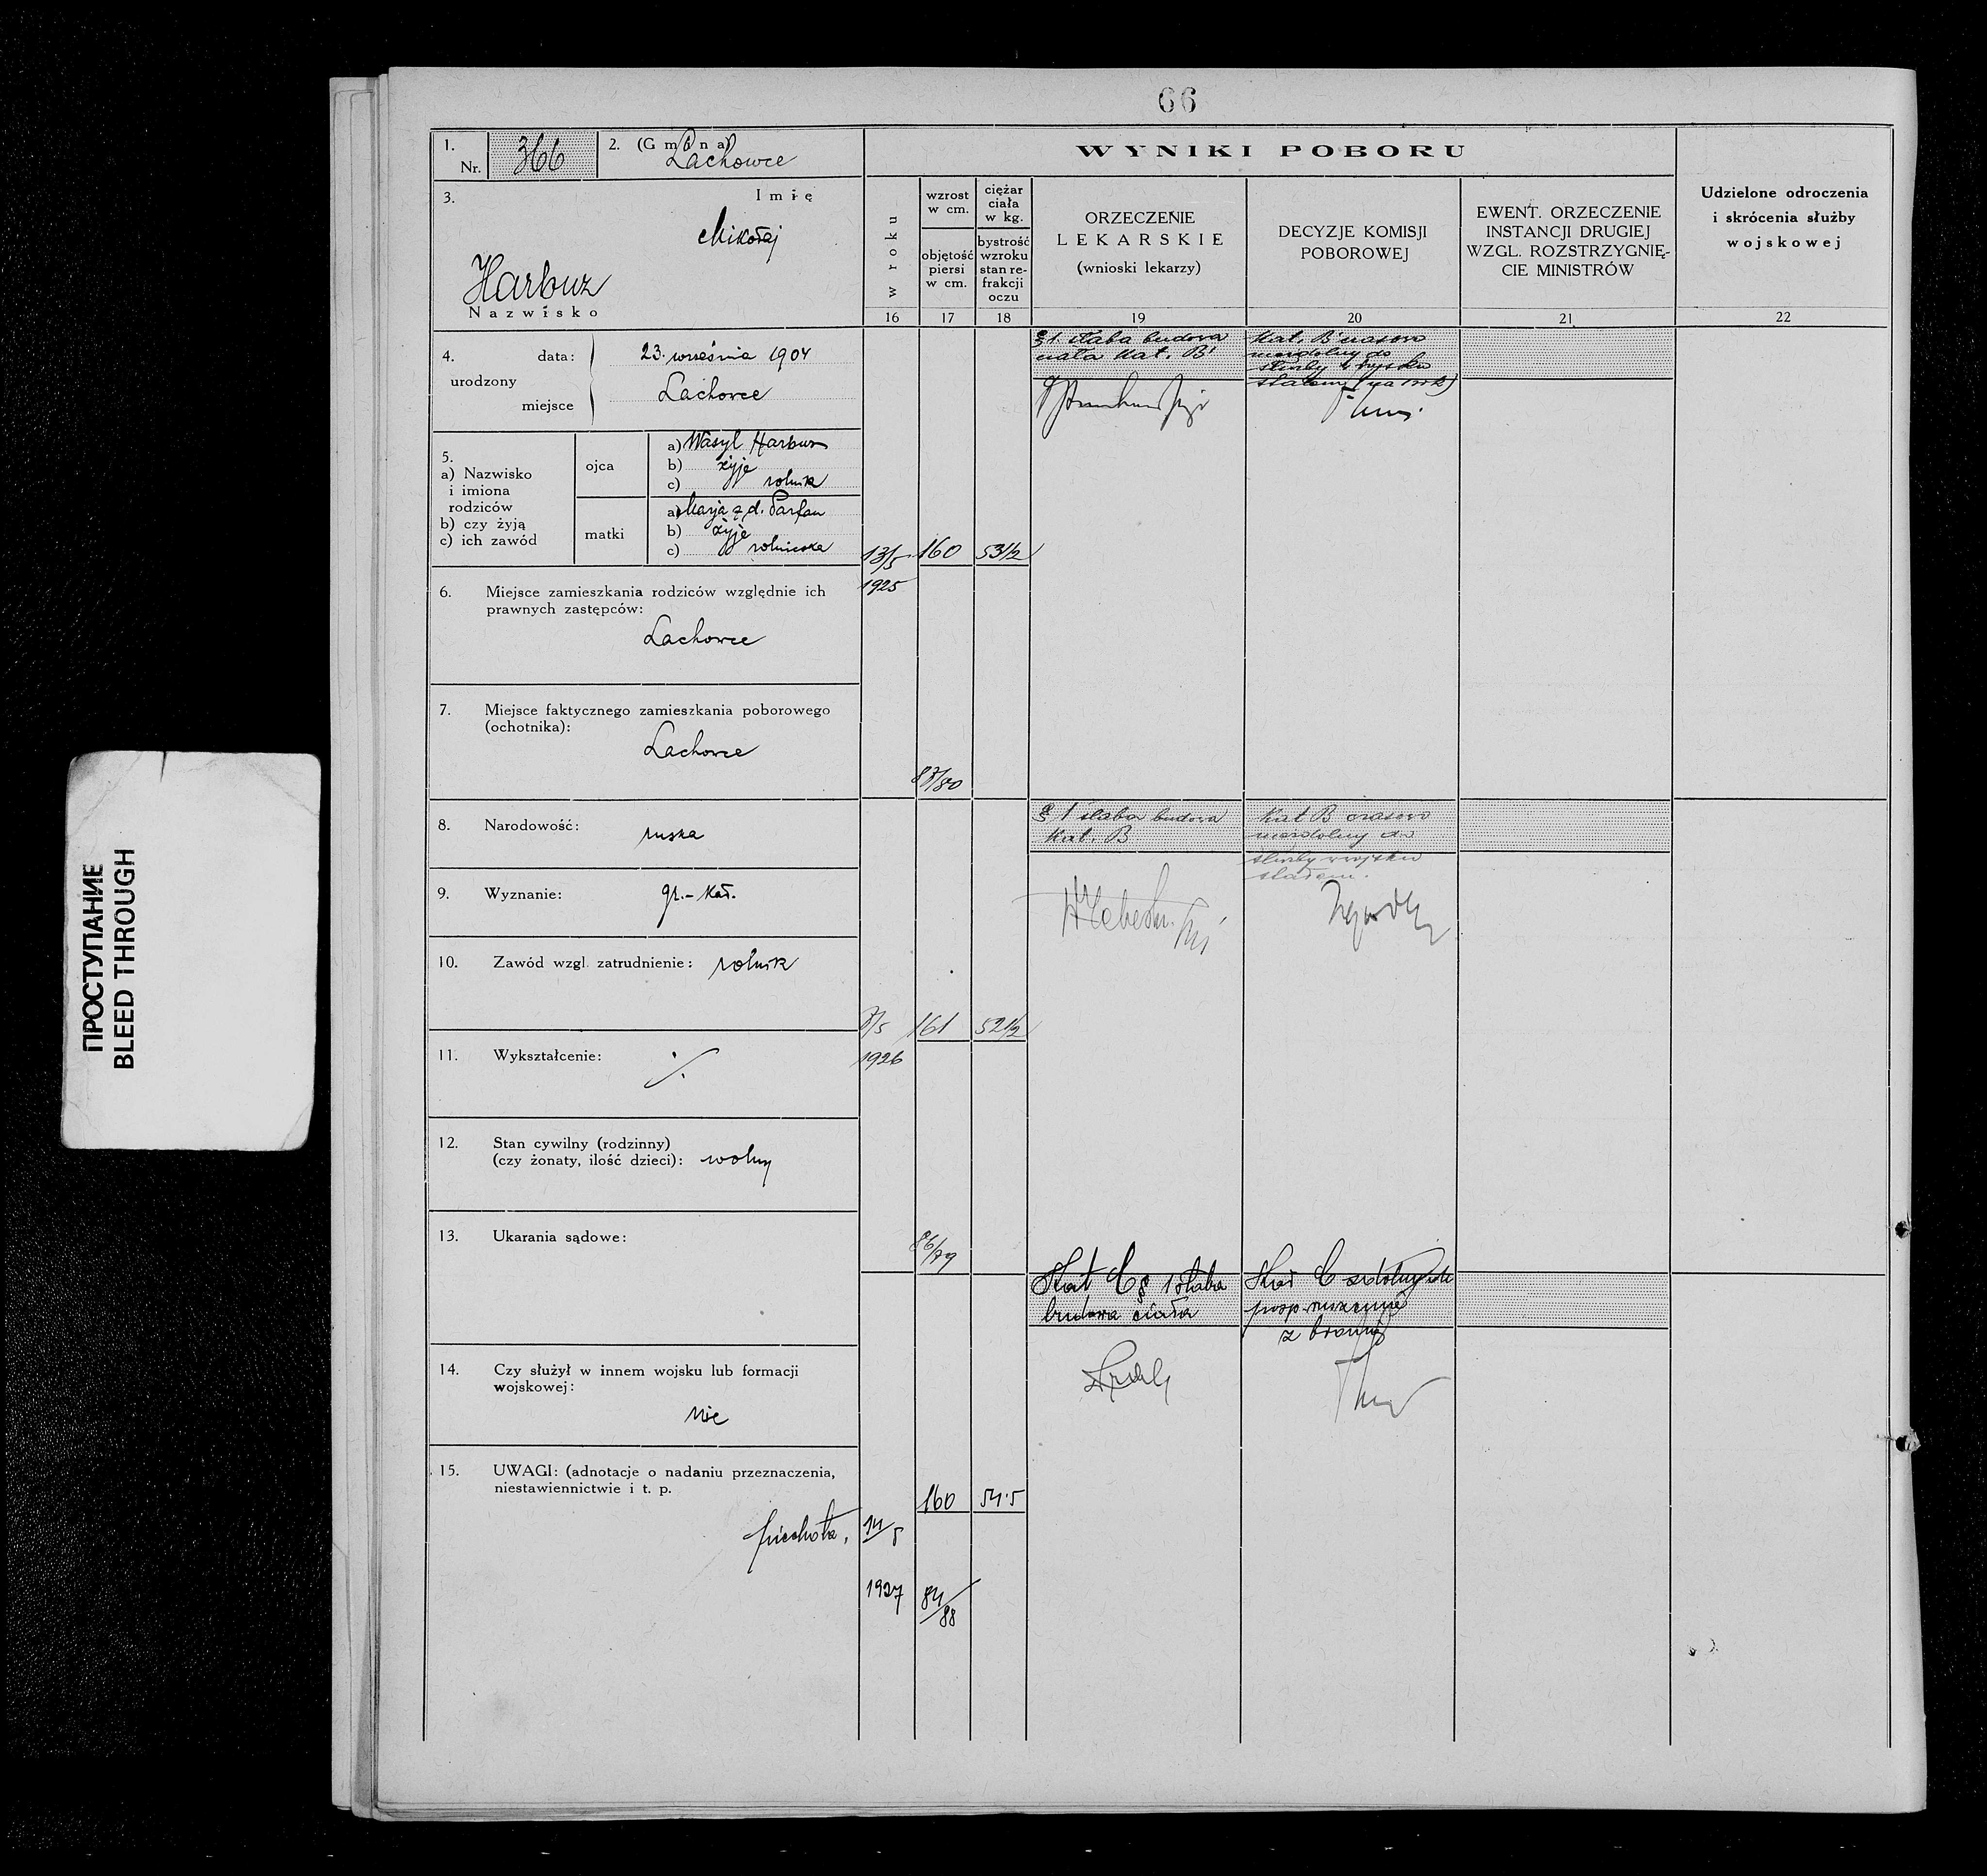 66
1. Nr. 366
2. (Gmina) Lachowce
3. Imię
Mikołaj
Harbuz
Nazwisko
4. urodzony
data: 23. września 1904
miejsce Lachowce
5.
a) Nazwisko
i imiona
rodziców
b) czy żyją
c) ich zawód
ojca
a) Wasyl Harbuz
b) żyje
c) rolnik
matki
a) Marja z d. Parfan
b) żyje
c) rolniczka
6. Miejsce zamieszkania rodziców względnie ich
prawnych zastępców:
Lachowce
7. Miejsce faktycznego zamieszkania poborowego
(ochotnika):
Lachowce
8. Narodowość: ruska
9. Wyznanie: gr.-kat.
10. Zawód wzgl. zatrudnienie: rolnik
11. Wykształcenie: ./.
12. Stan cywilny (rodzinny)
(czy żonaty, ilość dzieci): wolny
13. Ukarania sądowe:
14. Czy służył w innem wojsku lub formacji
wojskowej:
nie
15. UWAGI: (adnotacje o nadaniu przeznaczenia,
niestawiennictwie i t. p.
piechota.
WYNIKI POBORU
w roku
16
wzrost
w cm.
objętość
piersi
w cm.
17
ciężar
ciała
w kg.
bystrość
wzroku
stan re-
frakcji
oczu
18
ORZECZENIE
LEKARSKIE
(wnioski lekarzy)
19
DECYZJE KOMISJI
POBOROWEJ
20
EWENT. ORZECZENIE
INSTANCJI DRUGIEJ
WZGL. ROZSTRZYGNIĘ-
CIE MINISTRÓW
21
Udzielone odroczenia
i skrócenia służby
wojskowej
22
13/5
1925
160
53 1/2
87/80
§ 1. słaba budowa
ciała Kat. B
Kat. B czasowo
niezdolny do
służby w wojsku
stałem (na rok)
1926
161
52 1/2
86/79
§ 1 słaba budowa
Kat. B
Kat B czasowo
niezdolny do
służby w wojsku
stałem.
14/5
1927
160
54.5
84/88
Kat C § 1 słaba
budowa ciała
Kat C zdolny do
posp. ruszenia
z bronią
ПРОСТУПАНИЕ
BLEED THROUGH